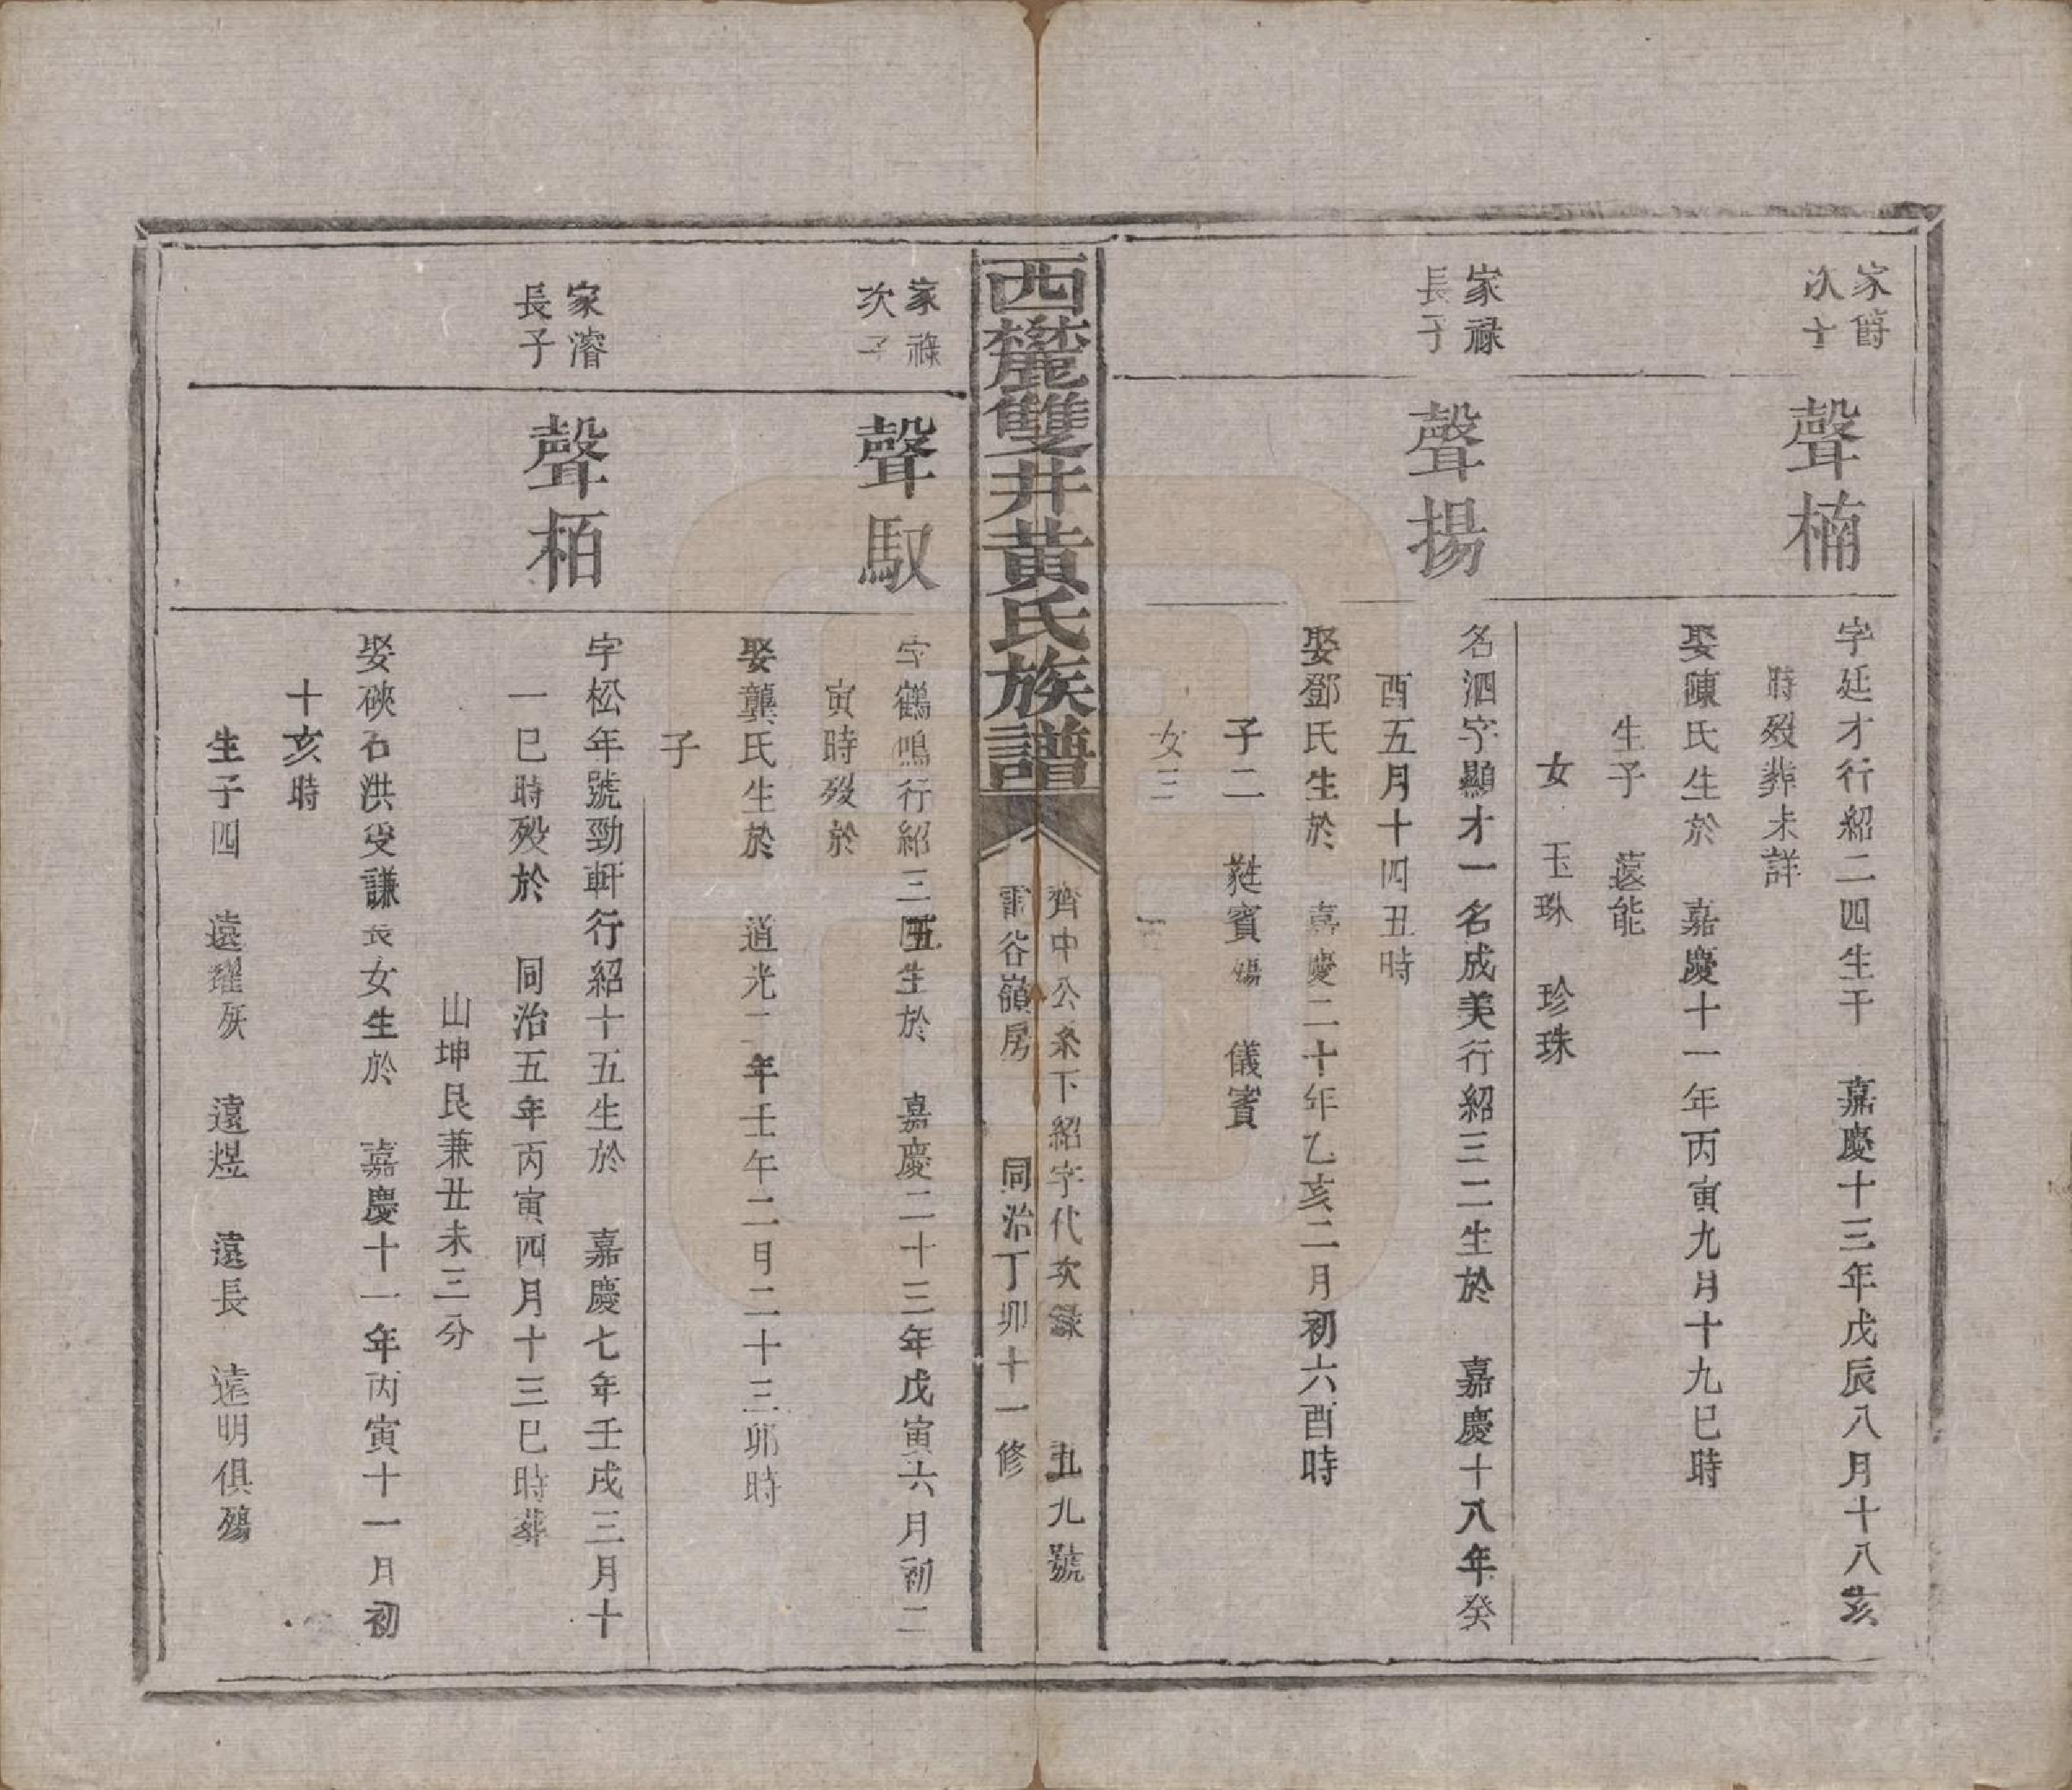 家爵
次子
聲楠
字廷才行紹二四生于 嘉慶十三年戊辰八月十八亥
時歿葬未詳
娶陳氏生於 嘉慶十一年丙寅九月十九巳時
生子 遠能
女 玉珠 珍珠
家祿
長子
聲揚
名泗字顯才一名成美行紹三二生於 嘉慶十八年癸
酉五月十四丑時
娶鄧氏生於 嘉慶二十年乙亥二月初六酉時
子二 蕤賓殤 儀賓
女三
西麓雙井黃氏族譜
齊中公系下紹字代次錄 五九號
雷谷嶺房 同治丁卯十一修
家祿
次子
聲馭
字鶴鳴行紹三五生於 嘉慶二十三年戊寅六月初二
寅時歿於
娶龔氏生於 道光二年壬午二月二十三卯時
子
家濬
長子
聲栢
字松年號勁軒行紹十五生於 嘉慶七年壬戌三月十
一巳時歿於 同治五年丙寅四月十三巳時葬
山坤艮兼丑未三分
娶硤石洪受謙長女生於 嘉慶十一年丙寅十一月初
十亥時
生子四 遠耀 遠煜 遠長 遠明俱殤